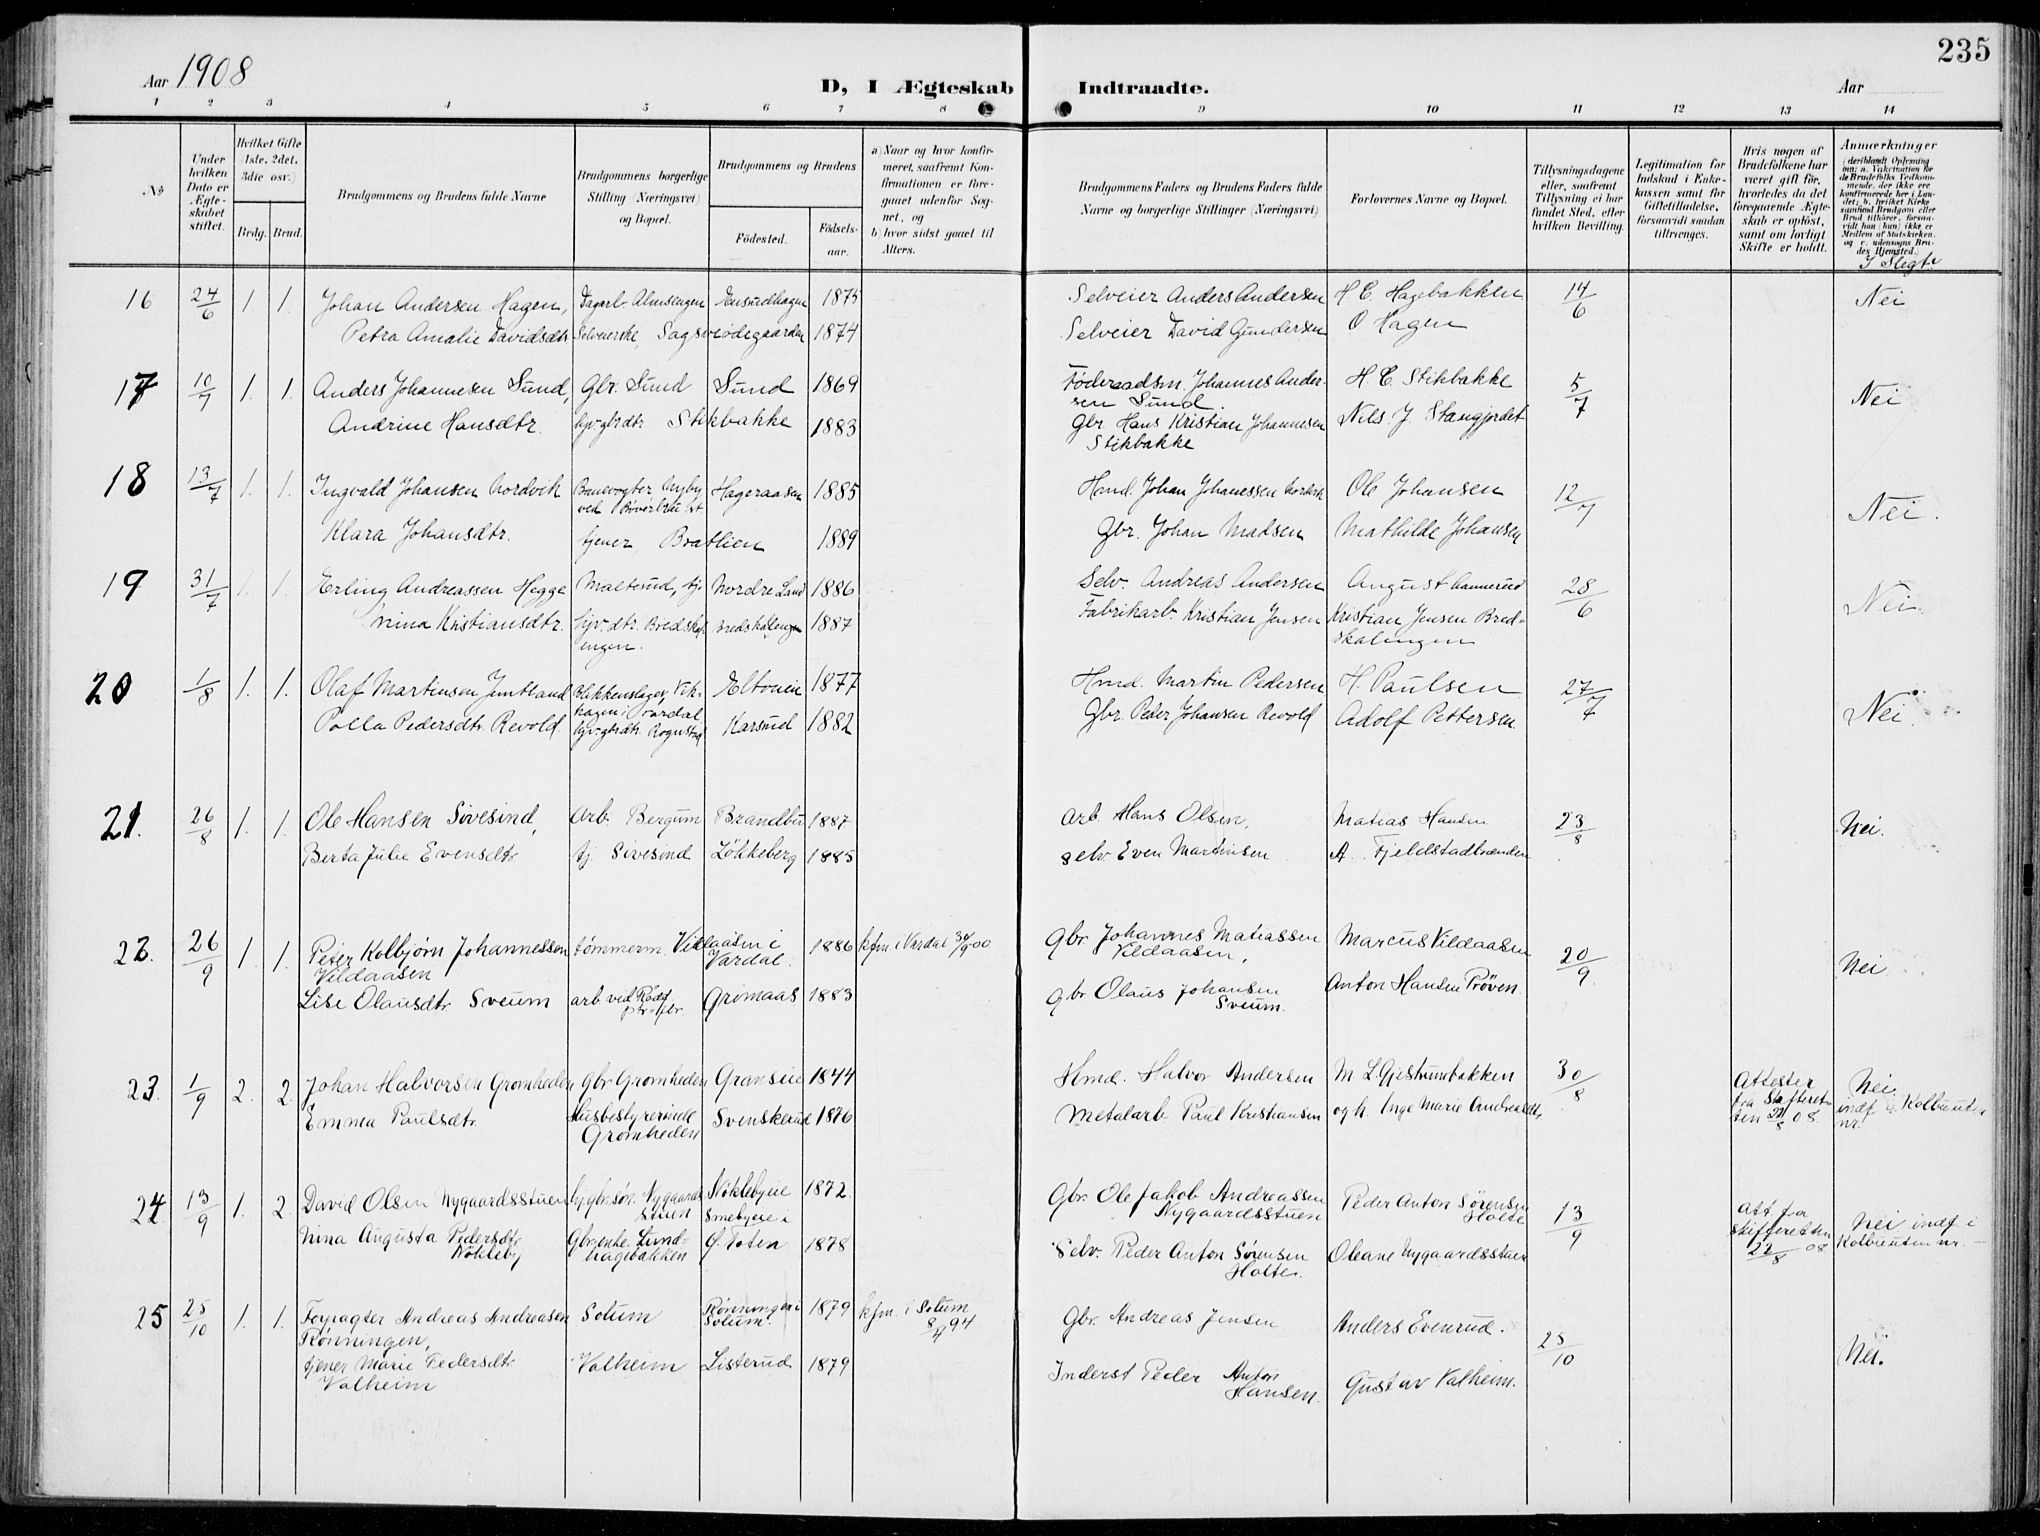 235
Aar 1908
D, I Ægteskab Indtraadte.
Aar
1 2 3 4 5 6 7 8 9 10 11 12 13 14
No
Under hvilken Dato er Ægteskabet stiftet.
Hvilket Gifte (1ste, 2det, 3die osv.)
Brdg. Brud.
Brudgommens og Brudens fulde Navne
Brudgommens borgerlige Stilling (Næringsvei) og Bopæl.
Brudgommens og Brudens
Fødested.
Fødsels-aar.
a) Naar og hvor konfirmeret, saafremt Konfirmationen er foregaaet udenfor Sognet, og
b) hvor sidst gaaet til Alters.
Brudgommens Faders og Brudens Faders fulde Navne og borgerlige Stillinger (Næringsvei)
Forlovernes Navne og Bopæl.
Tillysningsdagene eller, saafremt Tillysning ei har fundet Sted, efter hvilken Bevilling.
Legitimation for Indskud i Enkekassen samt for Giftetilladelse, forsaavidt saadan tiltrænges.
Hvis nogen af Brudefolkene har været gift før, hvorledes da det foregaaende Ægteskab er opløst, samt om lovligt Skifte er holdt.
Anmærkninger
I Slegt.
16 24/6 1. 1. Johan Andersen Hagen, Dagarb. Almsengen Ensrudhagen 1875 Selveier Anders Andersen H C. Hagebakken 14/6 Nei
Petra Amalie Davidsdtr Selveierske, Sagsveiødegaarden 1874 Selveier David Gundersen O Hagen
17 10/7 1. 1. Anders Johannesen Sund, Gbr. Sund Sund 1869 Føderaadsm. Johannes Andersen Sund. H. C. Stikbakke 5/7 Nei
Andrine Hansdtr. hjv. gbrdtr. Stikbakke 1883 Gbr. Hans Kristian Johannesen Stikbakke Nils J. Stangjordet
18 13/7 1. 1. Ingvald Johansen Nordvik Banevogter Nyby ved Bøverbru st. Hageraasen 1885 Hmd. Johan Johanessen Nordvik Ole Johansen 12/7 Nei.
Klara Johansdtr. tjener, Bratlien 1889 Gbr. Johan Madsen Mathilde Johansen
19 31/7 1. 1. Erling Andreassen Hegge Malterud, tj. Nordre Land 1886 Selv. Andreas Andersen August 28/6 Nei.
Nina Kristiansdtr. hjv. dtr. Bredskalengen. Bredskalengen 1887 Fabrikarb. Kristian Jensen Kristian Jensen Bredskalengen
20 1/8 1. 1. Olaf Martinsen Jemtland Blikkenslager, Vikhagen i Vardal Eltonein 1877 Hmd. Martin Pedersen H. Paulsen 27/7 Nei.
Polla Pedersdtr. Revold. hjv. gbrdtr. Rognstad Karsrud 1882 Gbr. Peder Johansen Revold Adolf Pettersen.
21. 26/8 1. 1. Ole Hansen Sivesind, Arb. Bergum Brandbu 1887 Arb. Hans Olsen. Matias Hansen 23/8 Nei.
Berta Julie Evensdtr tj. Sivesind Løkkeberg 1885 selv Even Martinsen A. Fjeldstadbrænden
22. 26/9 1. 1. Peter Kolbjørn Johannessen Vildaasen tømmerm. Vildaasen i Vardal. 1886 kfm. i Vardal 30/9 00 Gbr. Johannes Matiassen Vildaasen, Marcus Vildaasen 20/9 Nei
Lise Olausdtr. Sveum arb. ved Rødf. Grimaas 1883 gbr Olaus Johansen Sveum. Anton Hansen Prøven.
23. 1/9 2. 2. Johan Halvorsen Gromheden Gbr. Gromheden Granseie 1844 Hmd. Halvor Andersen M. L. Gjestrumbakken 30/8 Attester fra Skifteretten 22/8 08. Nei. indf. i Kolbuuten nr.
Emma Paulsdtr. Husbestyrerinde Gromheden Svenskerud 1876 Metalarb. Paul Kristiansen og h. Inge Marie Andreasdtr,
24. 13/9 1. 2. David Olsen Nygaardsstuen hj. gbr. søn. Nygaardsstuen Nøklebyeie 1872. Gbr. Ole Jakob Andreassen Nygaardsstuen Peder Anton Sørensen Holte 13/9 Att. fra Skifteretten 22/8 08 Nei indf. i Kolbuuten nr. -
Nina Augusta Pedersdtr Nøkleby Gbr. enke. Lundhagebakken Smebyeie i Ø. Toten 1878 Selv. Peder Anton Sørensen Holte. Oleane Nygaardsstuen
25 25/10 1. 1. Forpagter Andreas Andreasen Rønningen, Solum Rønningen i Solum. 1879 kfm. i Solum 8/4 94 Gbr. Andreas Jensen Anders Evenrud. 25/10 Nei.
tjener Marie Pedersdtr. Valheim Valheim Listerud 1879 Inderst Peder Anton Hansen. Gustav Valheim.